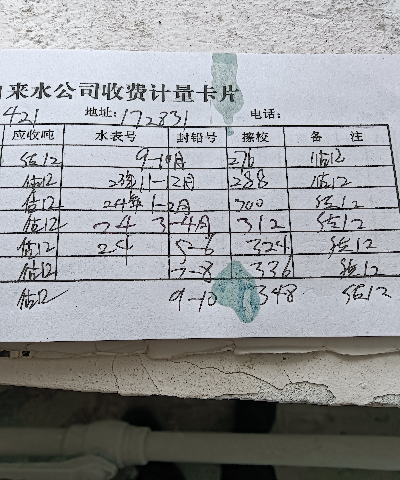 来水公司收费计量卡片
421 地址:172831 电话:
应收吨 水表号 封铅号 擦校 备 注
估12 9-10月 276 估12
估12 23年11-12月 288 估12
估12 24年1-2月 300 估12
估12 24 3-4月 312 估12
估12 24 5-6 324 估12
估12 7-8 336 估12
估12 9-10 348 估12